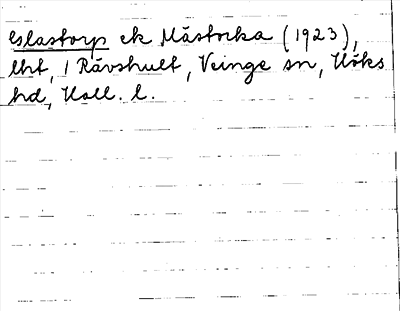 Eslastorp ek Mästocka (1923),
lht, / Rävshult, Veinge sn, Höks
hd, Hall. l.